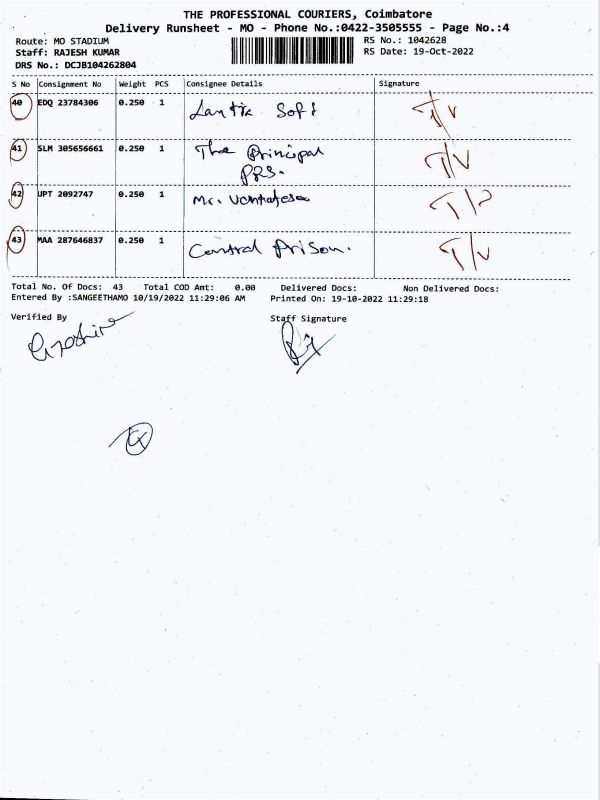 THE PROFESSIONAL COURIERS, Coimbatore
Delivery Runsheet - MO - Phone No.:0422-3505555 - Page No.:4
Route: MO STADIUM RS No.: 1042628
Staff: RAJESH KUMAR RS Date: 19-Oct-2022
DRS No.: DCJB104262804
S No Consignment No Weight PCS Consignee Details Signature
40 EDQ 23784306 0.250 1 Soft T/V
41 SLM 305656661 0.250 1 The Principal T/V
PRS.
42 UPT 2092747 0.250 1 Mr.
43 MAA 287646837 0.250 1 Central Prison. T/V
Total No. Of Docs: 43 Total COD Amt: 0.00 Delivered Docs: Non Delivered Docs:
Entered By :SANGEETHAMO 10/19/2022 11:29:06 AM Printed On: 19-10-2022 11:29:18
Verified By Staff Signature